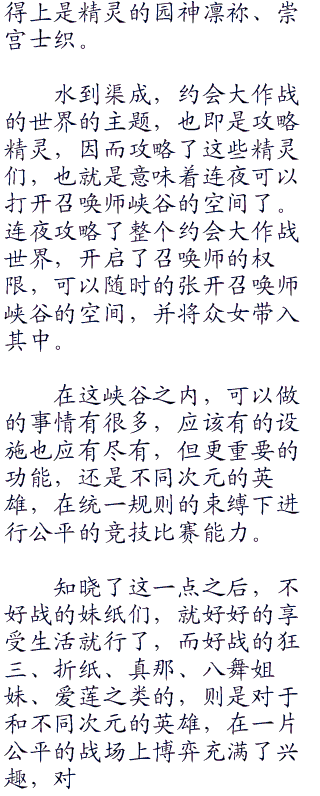 得上是精灵的园神凛祢、崇
宫士织。
水到渠成，约会大作战
的世界的主题，也即是攻略
精灵，因而攻略了这些精灵
们，也就是意味着连夜可以
打开召唤师峡谷的空间了。
连夜攻略了整个约会大作战
世界，开启了召唤师的权
限，可以随时的张开召唤师
峡谷的空间，并将众女带入
其中。
在这峡谷之内，可以做
的事情有很多，应该有的设
施也应有尽有，但更重要的
功能，还是不同次元的英
雄，在统一规则的束缚下进
行公平的竞技比赛能力。
知晓了这一点之后，不
好战的妹纸们，就好好的享
受生活就行了，而好战的狂
三、折纸、真那、八舞姐
妹、爱莲之类的，则是对于
和不同次元的英雄，在一片
公平的战场上博弈充满了兴
趣，对